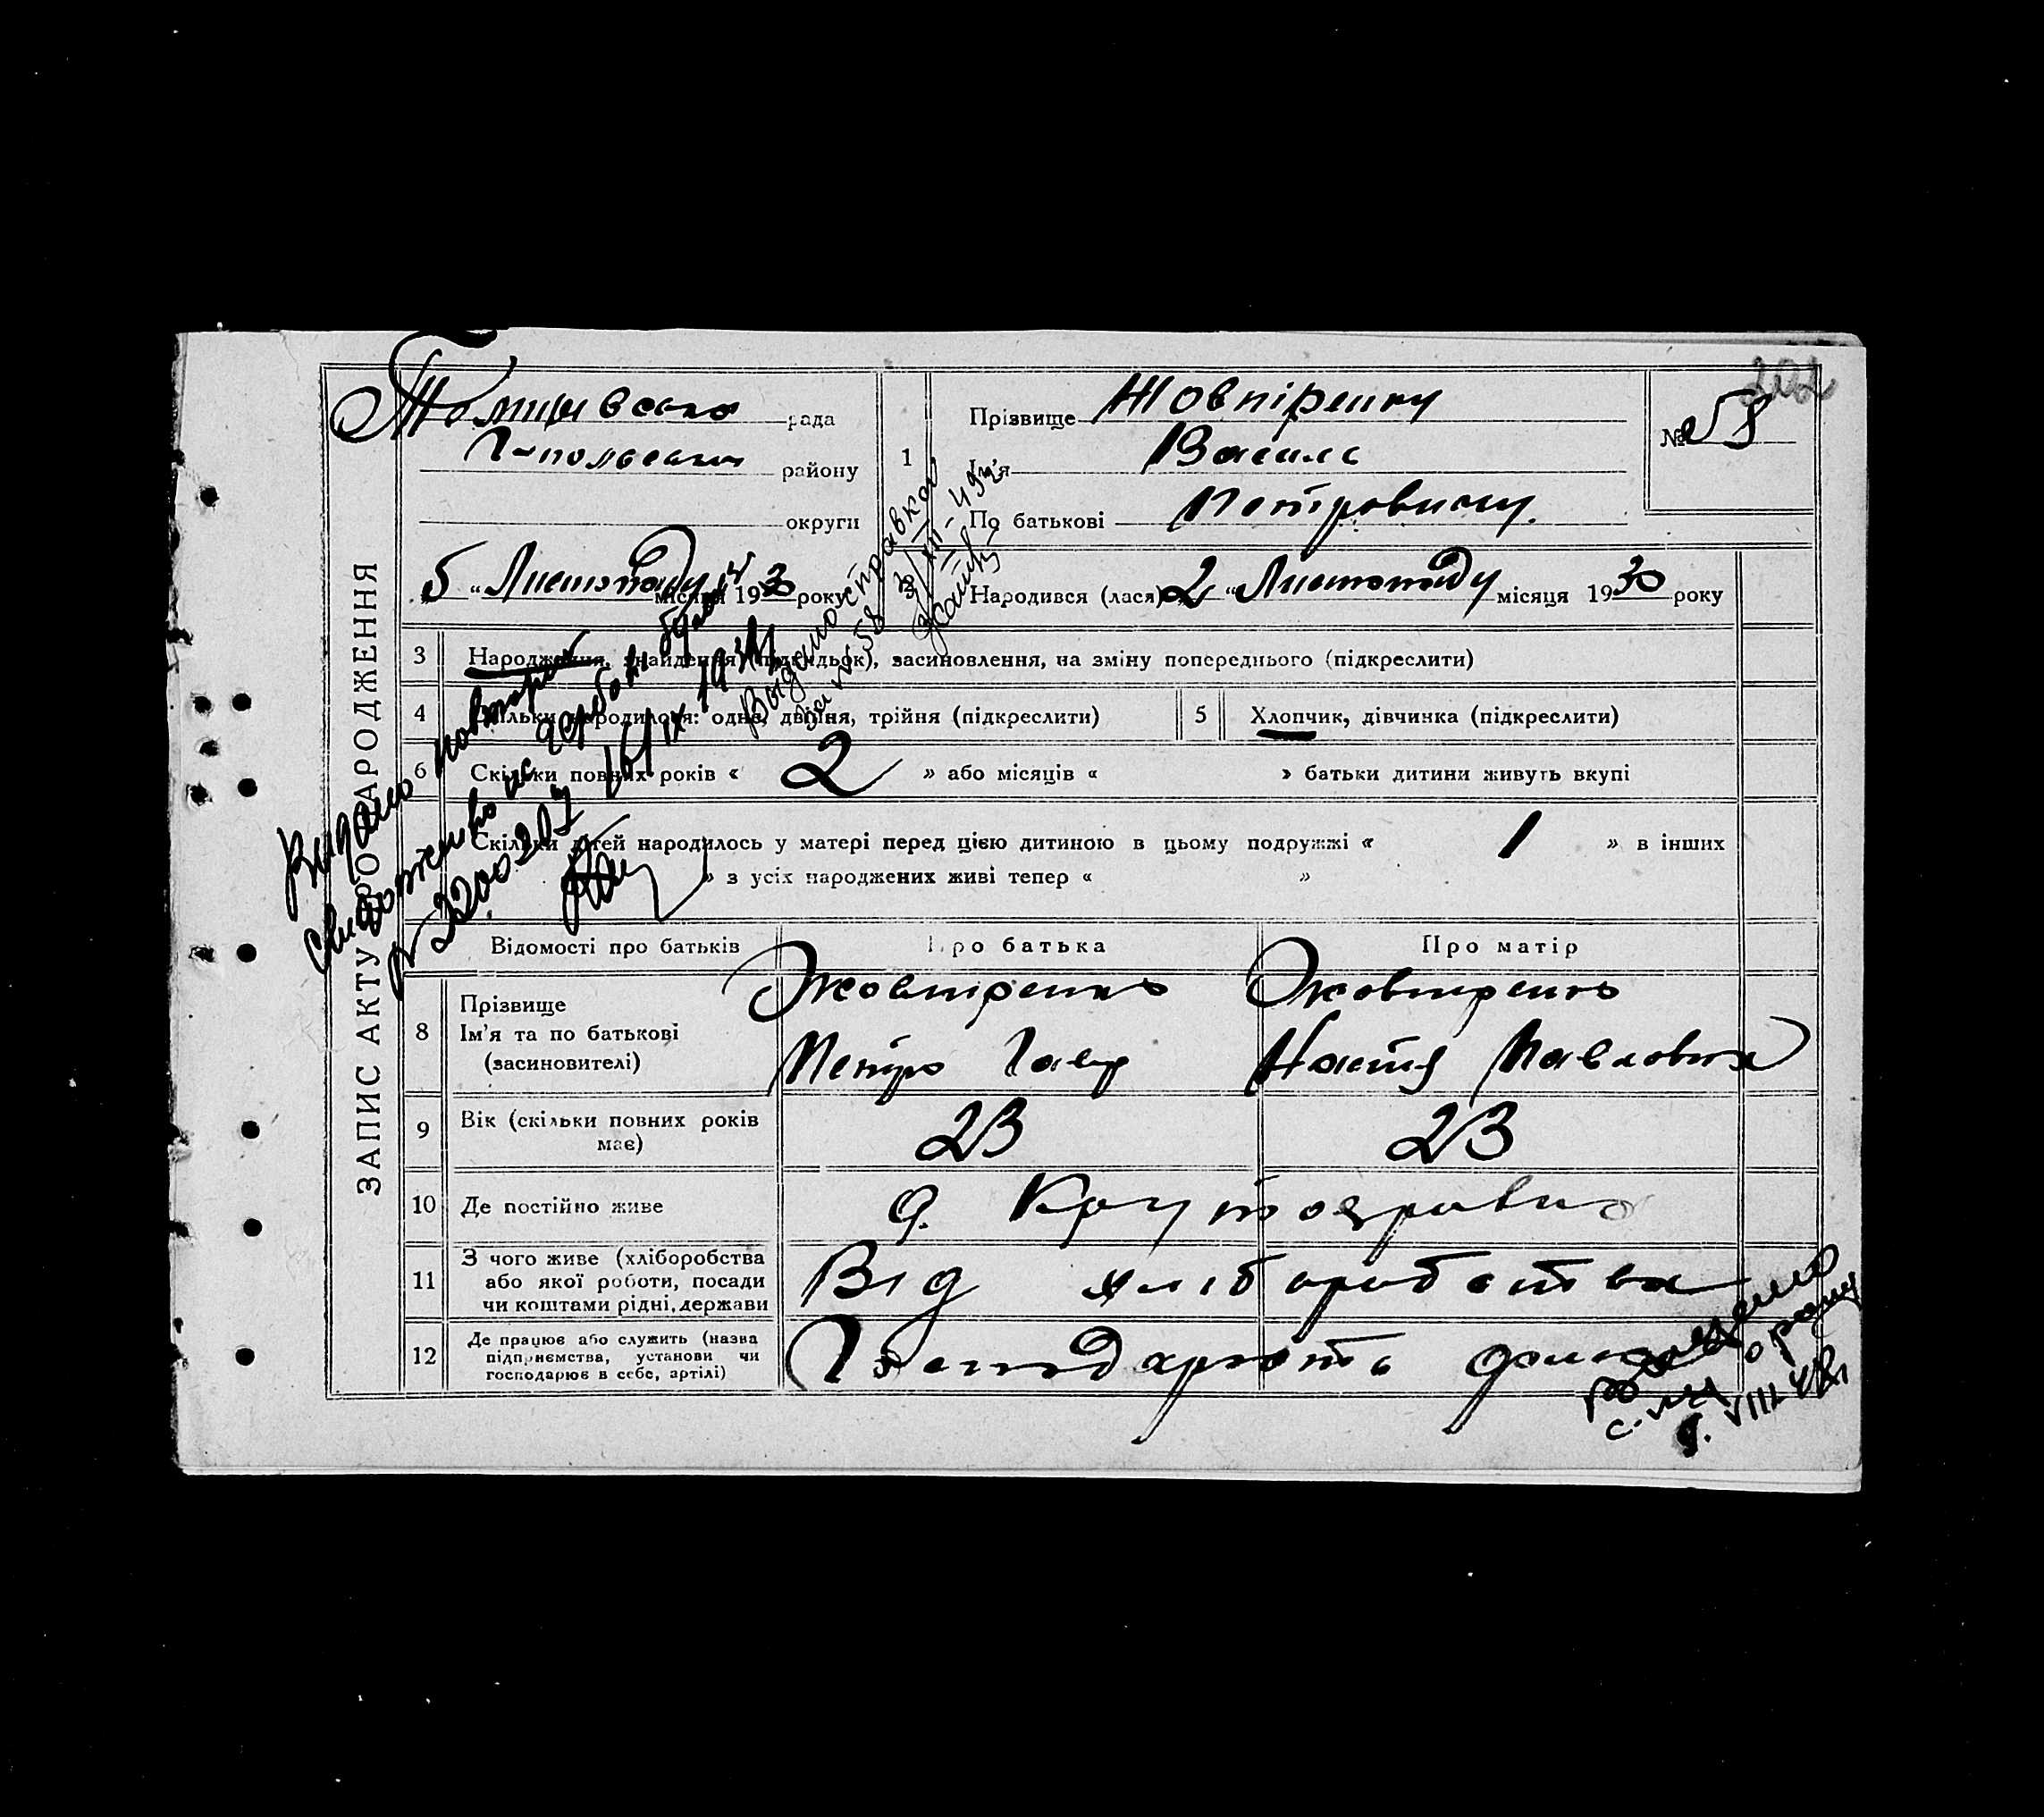 202
рада
Прізвище Жовпіренку
№ 58
району
1
Ім'я Василь
округи
По батькові Петровичу.
„5 “ Листопаду місяця 1930 року
Народився (лася) 2 “ Листопаду місяця 1930 року
ЗАПИС АКТУ ПРО НАРОДЖЕННЯ
3 Народження, знайдення (підкидьок), засиновлення, на зміну попереднього (підкреслити)
4 Скільки народилося: одне, двійня, трійня (підкреслити)
5 Хлопчик, дівчинка (підкреслити)
6 Скільки повних років « 2 » або місяців « » батьки дитини живуть вкупі
Скільки дітей народилось у матері перед цією дитиною в цьому подружжі « 1 » в інших
» з усіх народжених живі тепер « »
Видано повторно
свидоцтво
№ 2200207 16/IX 193
Видано справка
за № 58
Відомості про батьків
Про батька
Про матір
8 Прізвище
Ім'я та по батькові
(засиновителі)
Жовпіренко
Петро Гавр
Жовпіренко
Настя Павловна
9 Вік (скільки повних років має)
23
23
10 Де постійно живе
11 З чого живе (хліборобства
або якої роботи, посади
чи коштами рідні, держави
Від хліборобства
12 Де працює або служить (назва
підприємства, установи чи
господарює в себе, артілі)
VIII 48